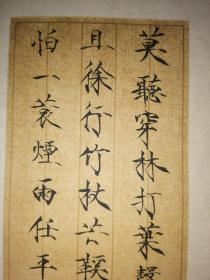 莫聽穿林打葉聲
且徐行竹杖芒鞋
怕一蓑煙雨任平